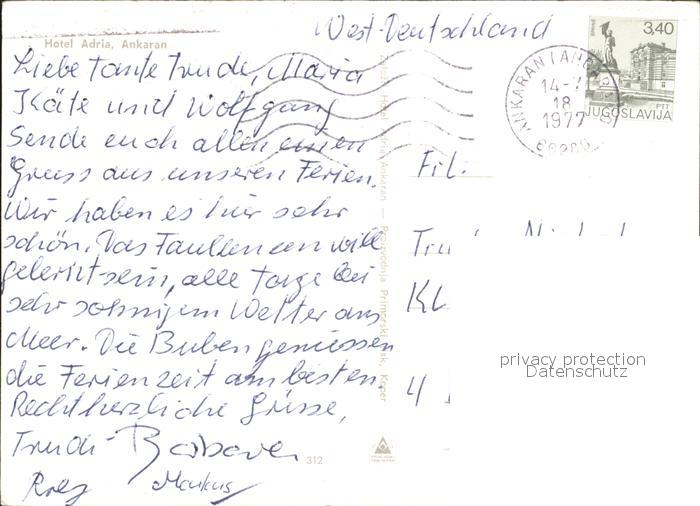 West-Deutschland
Hotel Adria, Ankaran
Liebe Tante Trude, Maria
Käte und Wolfgang
Sende euch allen einen
Gruss aus unseren Ferien.
Wir haben es hier sehr
schön. Das Faullenzen will
gelernt sein, alle Tage bei
sehr sonnigem Wetter ans
Meer. Die Buben geniessen
die Ferienzeit am besten
Recht herzliche Grüsse,
Trudi Barbara
Markus
312
3,40
PTT
JUGOSLAVIJA
ANKARAN
14-7
18
1977
Frl.
KL
4
privacy protection
Datenschutz